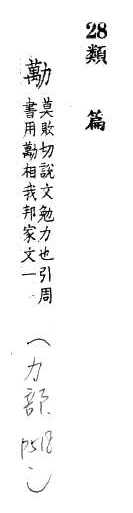 28類篇
勱
莫敗切說文勉力也引周
書用勱相我邦家文一
(力部 p518)